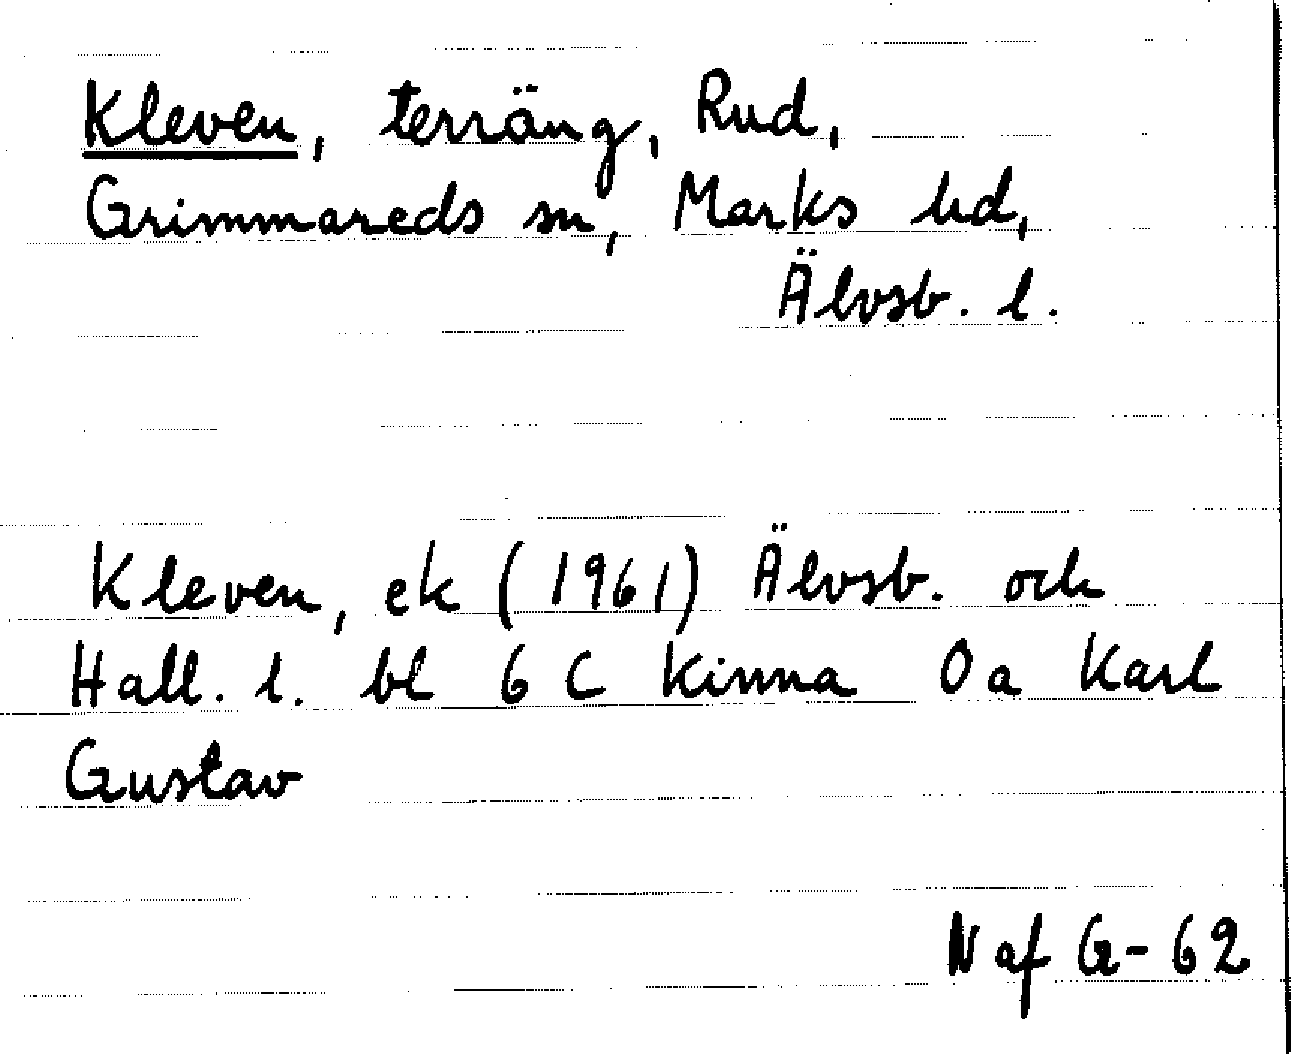 Kleven, terräng, Rud,
Grimmareds sn, Marks hd,
Älvsb. l.
Kleven, ek (1961) Älvsb. och
Hall. l. bl 6 C Kinna 0 a Karl
Gustav
N af G-62